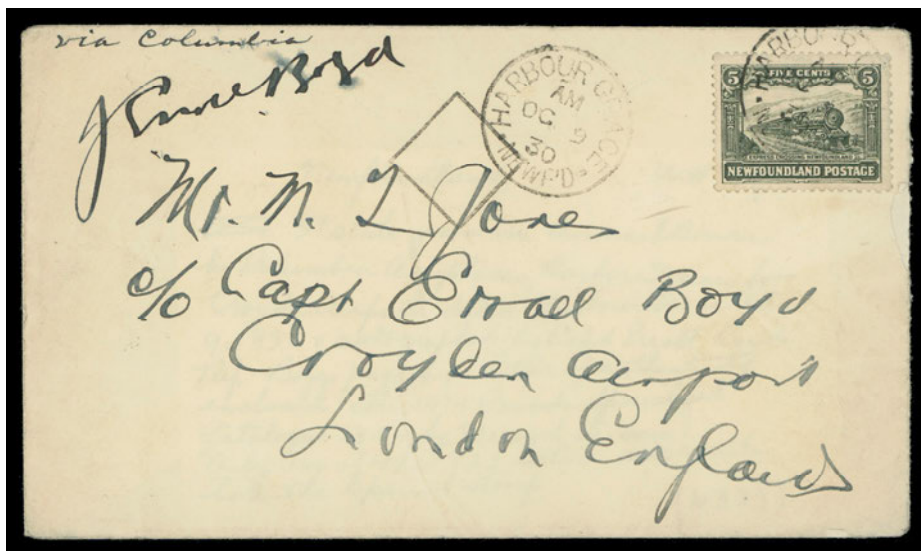 via Columbia
J Errol Boyd
HARBOUR GRACE
AM
OC 9
30
NEWF'D
HARBOUR
5 FIVE CENTS 5
EXPRESS CROSSING NEWFOUNDLAND
NEWFOUNDLAND POSTAGE
Mr. M. L Jones
c/o Capt Erroll Boyd
Croyden Airport
London England